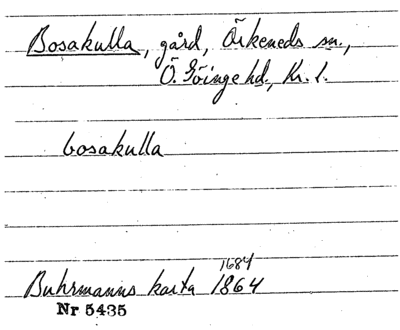 Bosakulla, gård, Örkeneds sn.,
Ö. Göinge hd., Kr. l.
bosakulla
1684
Buhrmanns karta 1864
Nr 5435